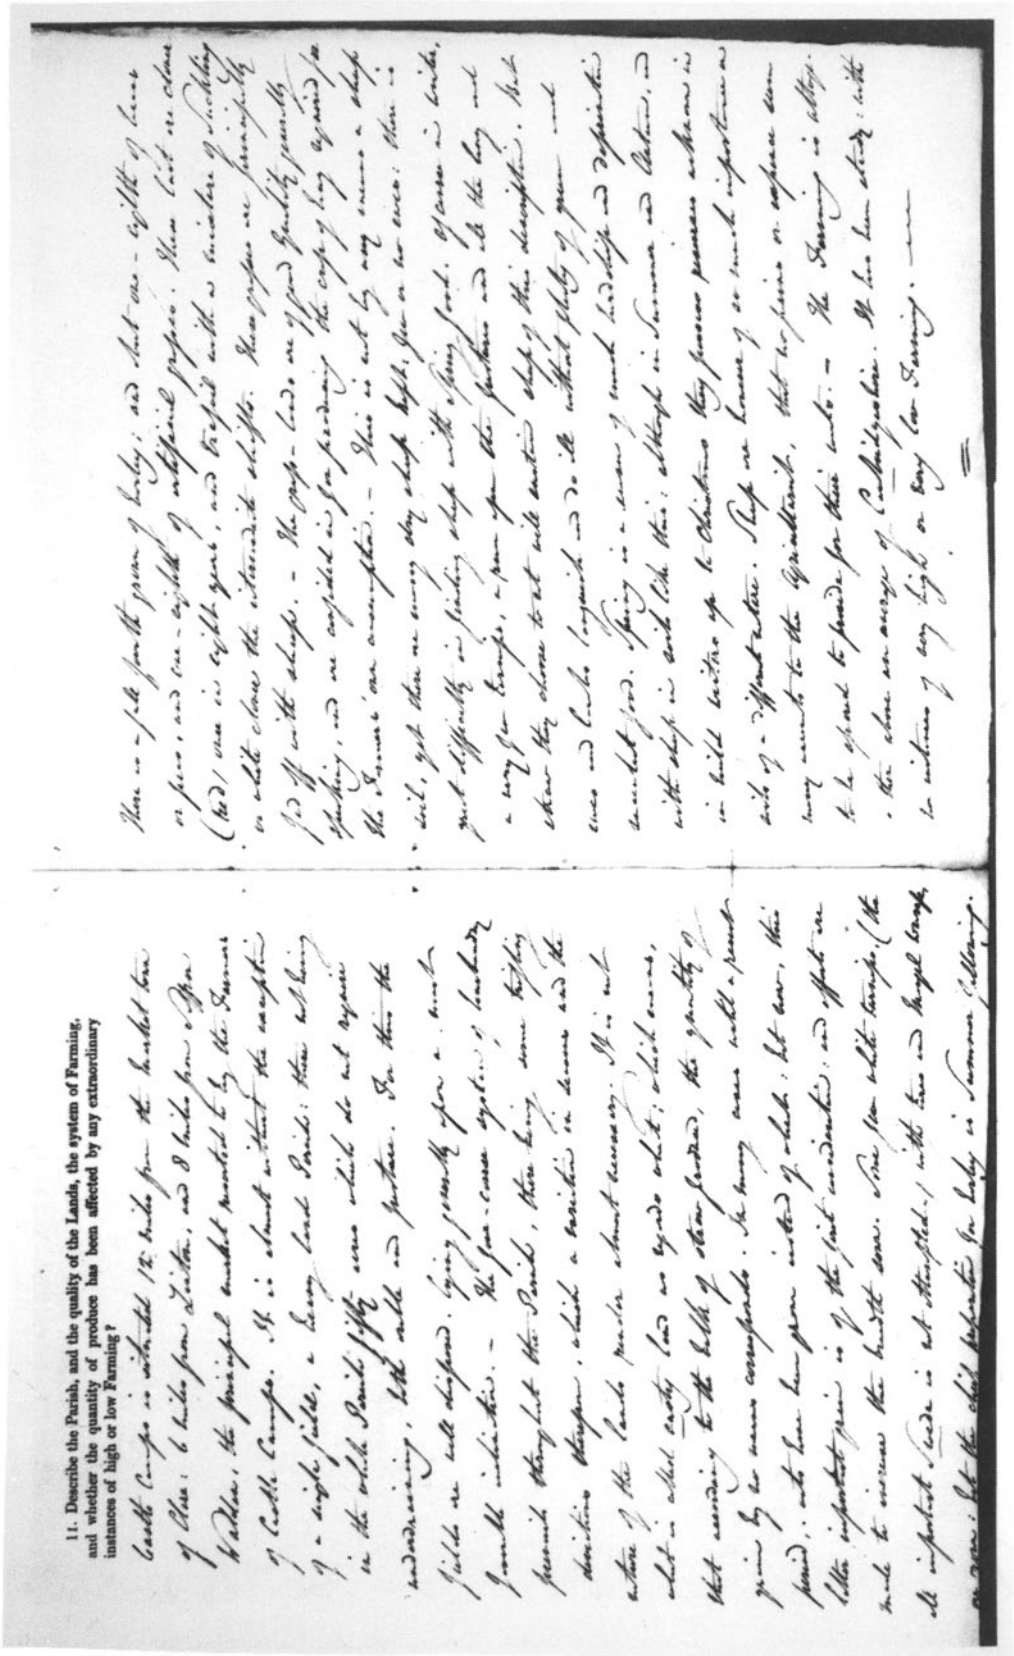 11. Describe the Parish, and the quality of the Lands, the system of Farming,
and whether the quantity of produce has been affected by any extraordinary
instances of high or low Farming?
Castle Camps is situated 12 miles from the market town
of Clare: 6 miles from Linton, and 8 miles from Saffron
Walden, the principal market resorted to by the Farmers
of Castle Camps. It is almost without the exception
of a single field, a heavy land Parish: there not being
in the whole Parish fifty acres which do not require
underdraining, both arable and pasture. For this the
fields are well disposed: lying generally upon a most
favorable inclination. - The four-course system of husbandry
prevails throughout the Parish, there being some trifling
deviations therefrom, which a variation in seasons and the
nature of the lands render almost necessary. It is not
what is called crosty land as regards wheat: which means,
that according to the bulk of straw produced, the quantity of
grain by no means corresponds. In many cases until a recent
period, oats have been grown instead of wheat: but now, this
latter important grain is of the first consideration: and efforts are
made to increase the breadth sown. Some grow white turnips, (the
all important Swede is not attempted.) with tares and Mangel Wurzel,
or rape: but the chief preparation for barley is Summer fallowing.
There is a full fourth grown of barley; and about one-eighth of beans
or peas, and one-eighth of artificial grasses. These last are clover
(red) once in eight years, and trefoil with a mixture of Suckling
or white clover the intermediate shifts. These grasses are principally
fed off with sheep. - The grass-lands are of good quality generally
speaking, and are confined in for producing the crop of hay required for
the Farmers' own consumption. - This is not by any means a sheep
soil, yet there are many sheep kept, few or no ewes: there is
great difficulty in finding sheep with Spring food. Of course in winter,
a very few turnips, a run upon the pastures and all the hay and
straw they choose to eat will sustain sheep of this description, but
ewes and lambs languish and do ill without plenty of green and
succulent food. Spring is a season of much hardship and deprivation
with sheep in soils like this: although in Summer and Autumn, and
in mild winters up to Christmas they possess pastures unknown in
soils of a different nature. Sheep are however of so much importance in
many counts to the Agriculturist, that no pains or expense seem
to be spared to provide for their wants. - The Farming is altogether
above an average of Cambridgeshire. It has been steady: with
no instances of very high or very low Farming. -